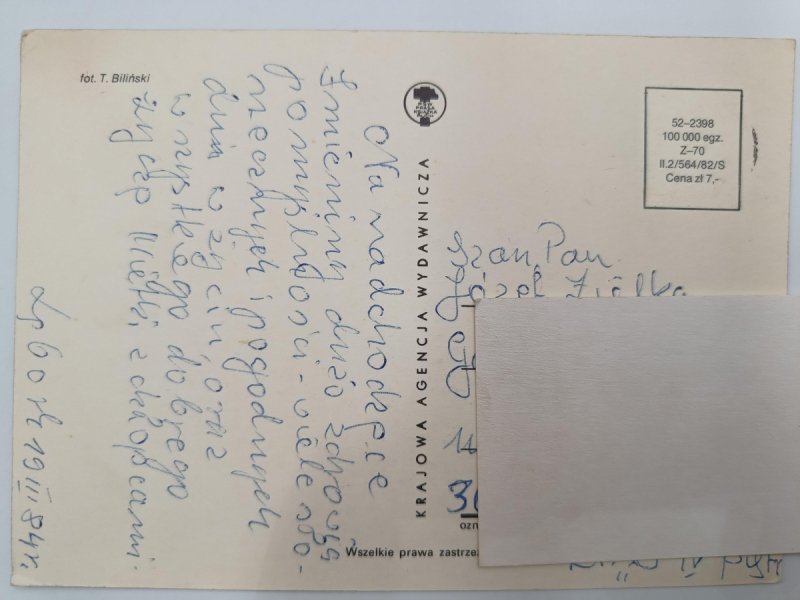 fot. T. Biliński
Na nadchodzące
Imieniny dużo zdrowia
pomyślności - wiele sło-
necznych i pogodnych
dnia w życiu, oraz
wszystkiego dobrego
życzę Mietki, z chłopcami.
19 III 84 r.
KRAJOWA AGENCJA WYDAWNICZA
RSW
PRASA
KSIĄŻKA
RUCH
52–2398
100 000 egz.
Z–70
II.2/564/82/S
Cena zł 7,–
Szan. Pan
Józef Ziółka
Wszelkie prawa zastrze